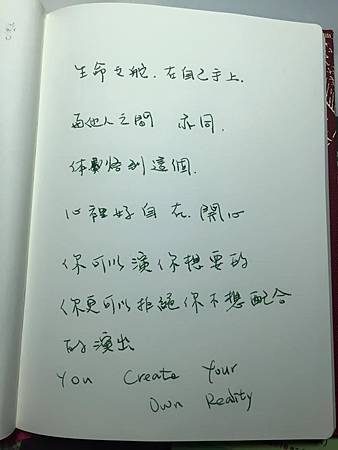 生命之舵.在自己手上.
與他人之間 亦同.
体驗悟到這個.
心裡好自在.開心
你可以演你想要的
你更可以拒絕你不想配合
的演出
You Create Your
Own Reality